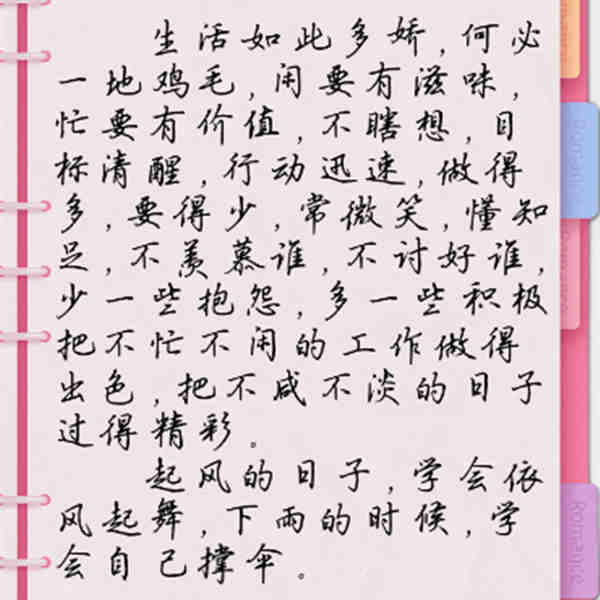 生活如此多娇,何必
一地鸡毛,闲要有滋味,
忙要有价值,不瞎想,目
标清醒,行动迅速,做得
多,要得少,常微笑,懂知
足,不羡慕谁,不讨好谁,
少一些抱怨,多一些积极
把不忙不闲的工作做得
出色,把不咸不淡的日子
过得精彩。
起风的日子,学会依
风起舞,下雨的时候,学
会自己撑伞。
Romance
Romance
Romance